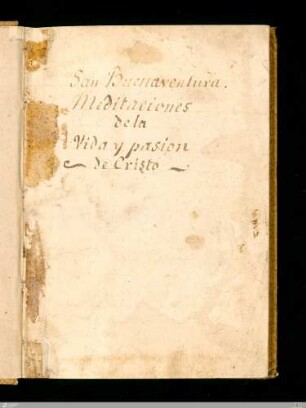 San Buenaventura.
Meditaciones
de la
Vida y pasion
de Cristo